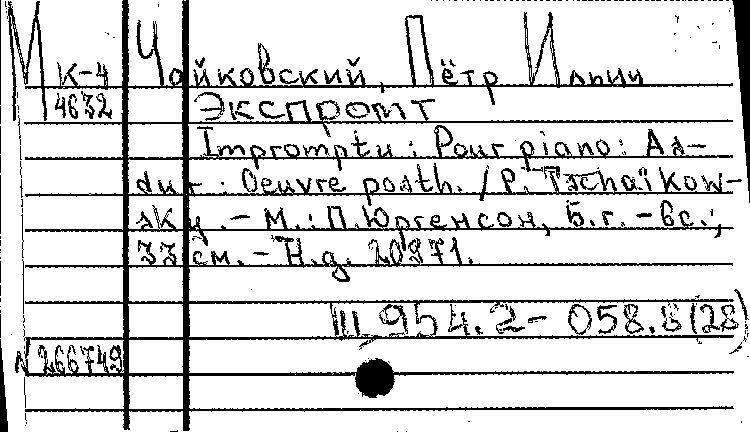 М К-4 Чайковский, Пётр Ильич
4632 Экспромт
Impromptu : Pour piano : As-
dur : Oeuvre posth. / P. Tschaïkow-
sky. - М. : П. Юргенсон, Б.г. - 6с.;
33 см. - Н.д. 20971.
Ш 954.2 - 058.8 (28)
N 266749